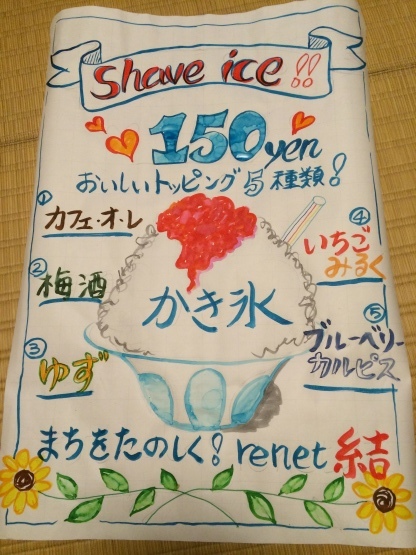 Shave ice!!
150yen
おいしいトッピング5種類!
① カフェ・オ・レ
② 梅酒
③ ゆず
④ いちご
みるく
⑤ ブルーベリー
カルピス
かき氷
まちをたのしく! renet 結